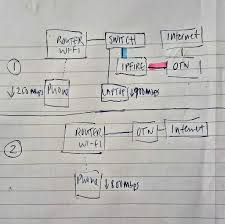 ROUTER SWITCH Internet
WI-FI
1 IPFIRE OTN
↓250Mbps Phone LAPTOP ↓900Mbps
2 ROUTER OTN Internet
WI-FI
Phone ↓800Mbps